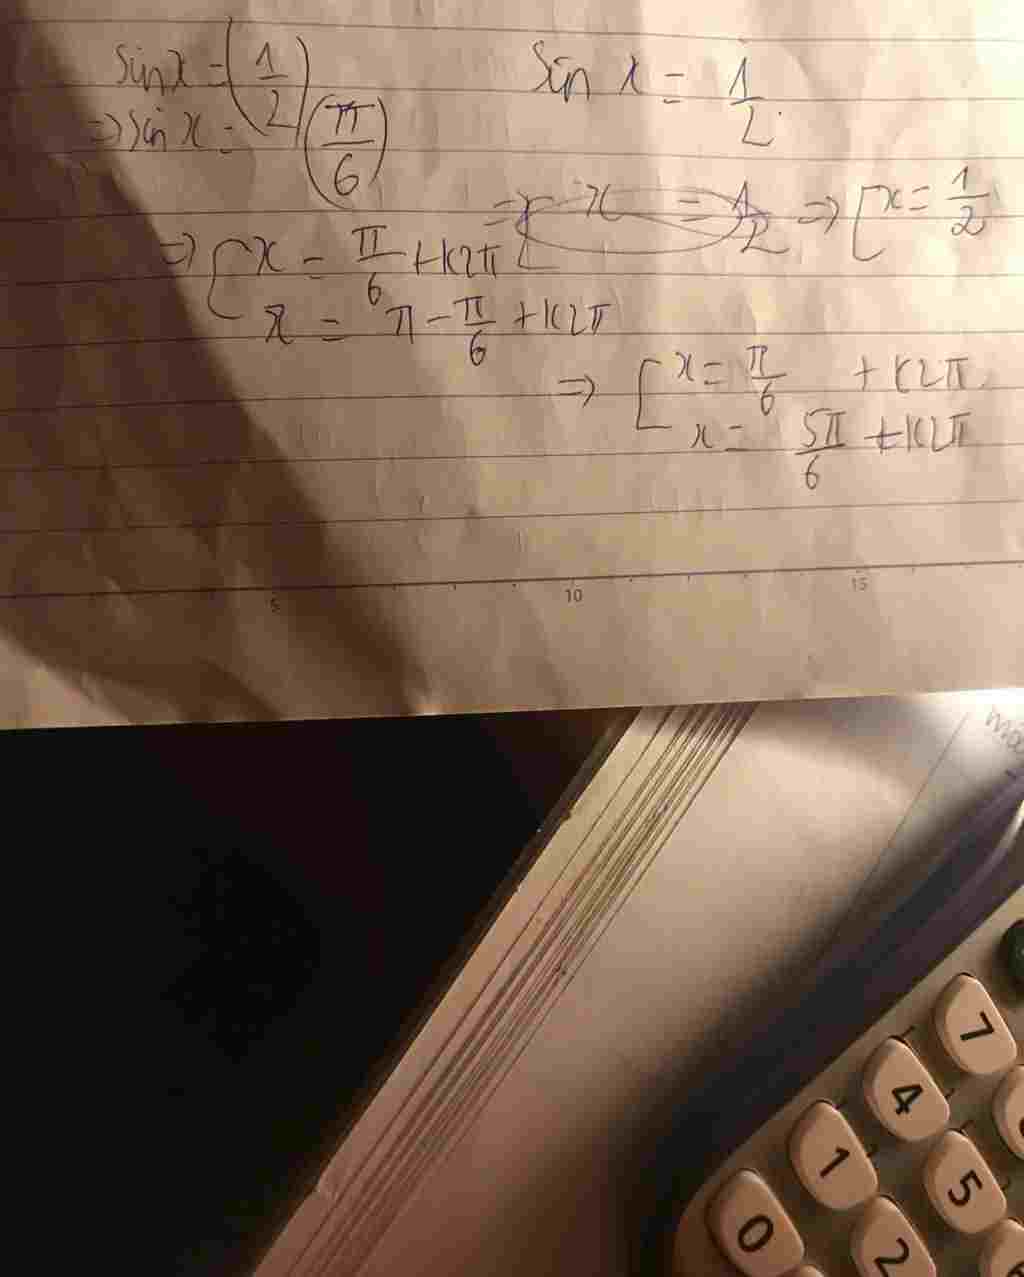 sin x = (1/2)
=> sin x = (π/6)
=> [ x = π/6 + k2π
x = π - π/6 + k2π
sin x = 1/2
=> [ x = 1/2 => [ x = 1/2
=> [ x = π/6 + k2π
x = 5π/6 + k2π
5 10 15
7
4
1 5
0 2